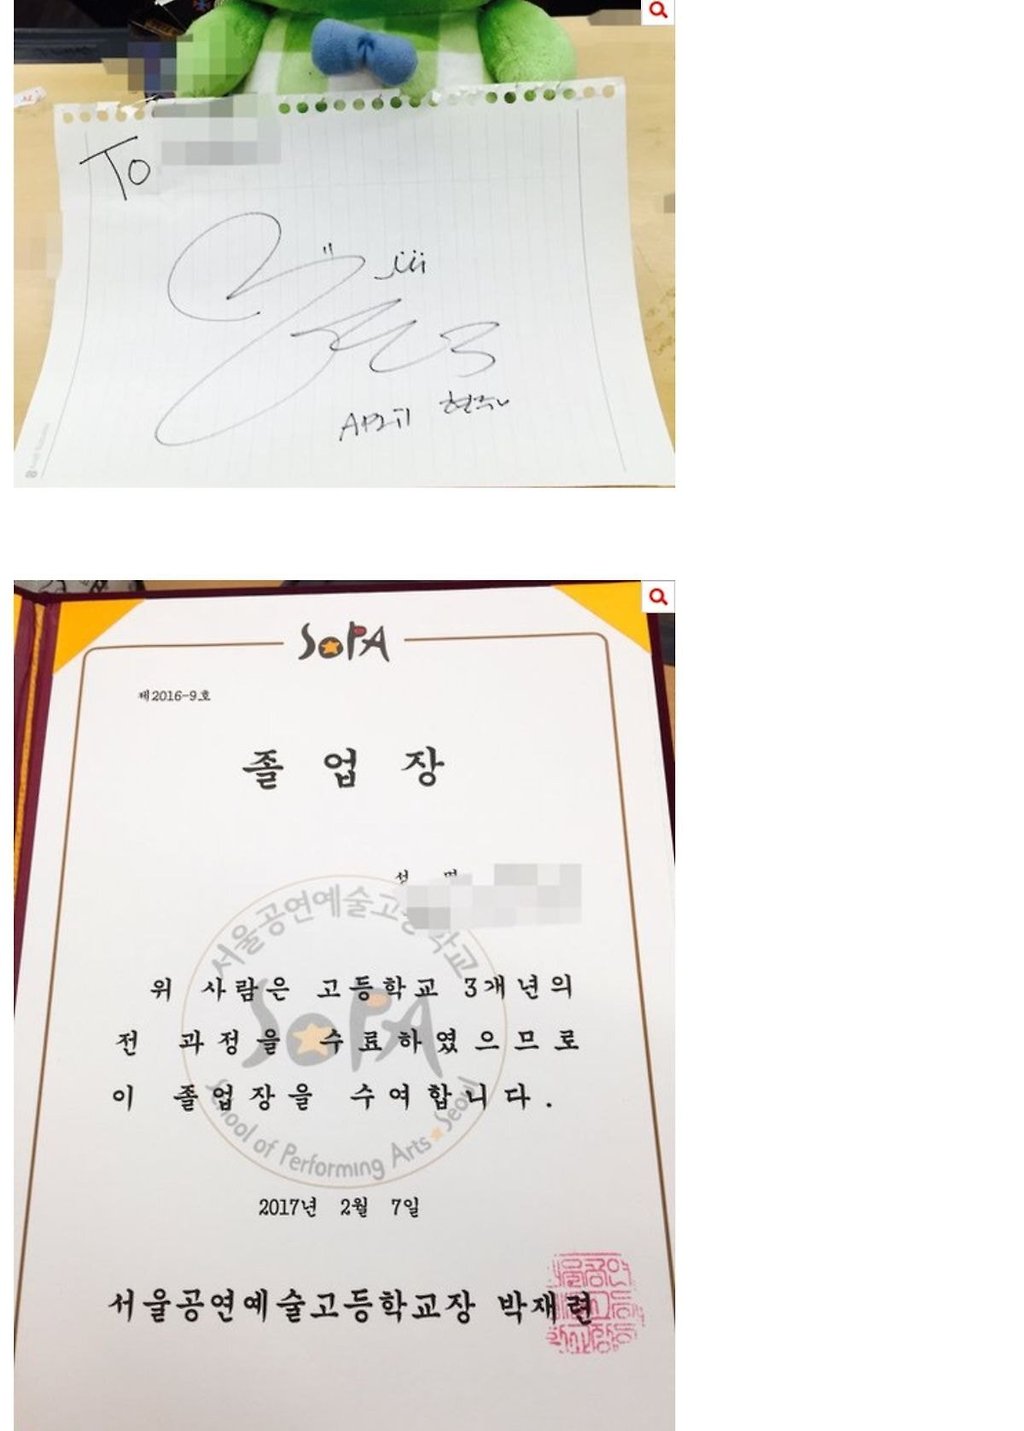 To
SoPA
제2016-9호
졸 업 장
성 명
서울공연예술고등학교
위 사람은 고등학교 3개년의
전 과정을 수료하였으므로
이 졸업장을 수여합니다.
SoPA
School of Performing Arts Seoul
2017년 2월 7일
서울공연예술고등학교장 박재련